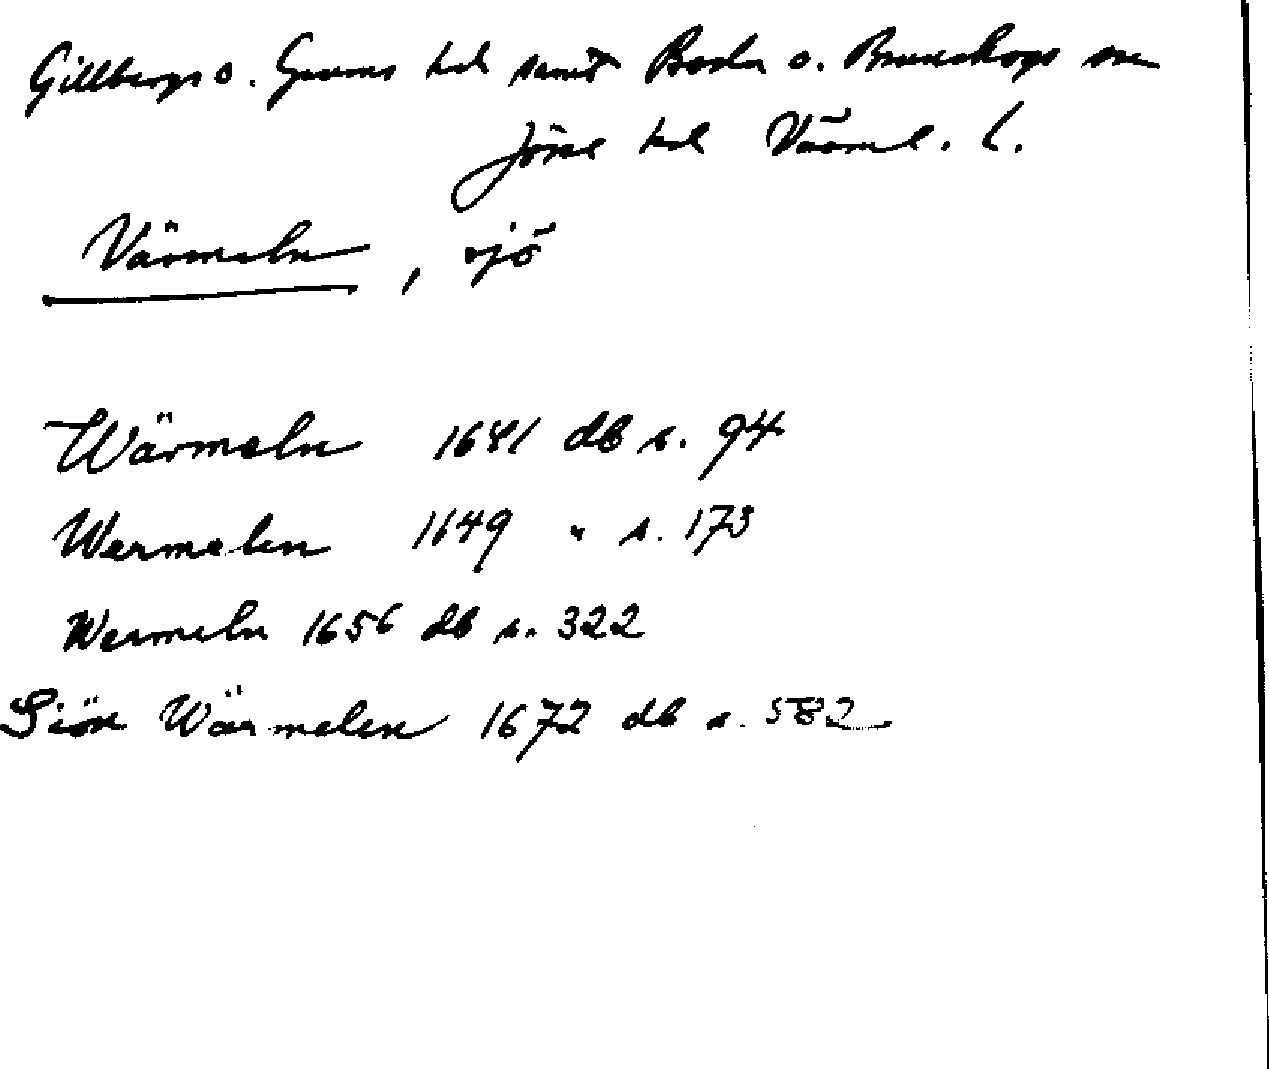 Gillbergs o. Grums hd samt Boda o. Brunskogs snr
Jösse hd Värml. l.
Värmeln, sjö
Wärmeln 1641 db s. 94
Wermelen 1649 " s. 173
Wermeln 1656 db s. 322
Siön Wärmelen 1672 db s. 582